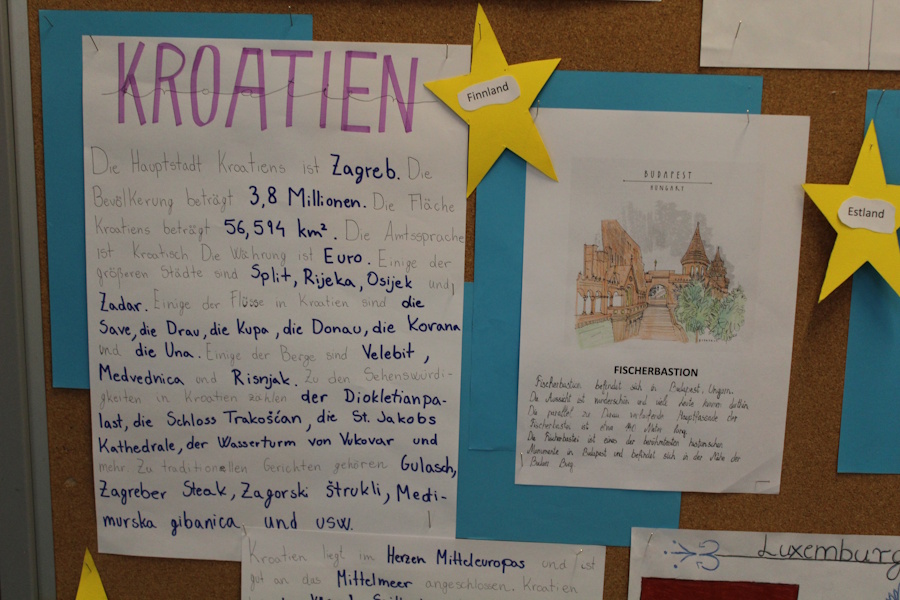 KROATIEN
kroatien
Die Hauptstadt Kroatiens ist Zagreb. Die
Bevölkerung beträgt 3,8 Millionen. Die Fläche
Kroatiens beträgt 56,594 km². Die Amtssprache
ist Kroatisch Die Währung ist Euro. Einige der
größeren Städte sind Split, Rijeka, Osijek und
Zadar. Einige der Flüsse in Kroatien sind die
Save, die Drau, die Kupa, die Donau, die Korana
und die Una. Einige der Berge sind Velebit,
Medvednica und Risnjak. Zu den Sehenswürdi-
gkeiten in Kroatien zählen der Diokletianpa-
last, die Schloss Trakošćan, die St. Jakobs
Kathedrale, der Wasserturm von Vukovar und
mehr. Zu traditionellen Gerichten gehören Gulasch,
Zagreber Steak, Zagorski Štrukli, Medi-
murska gibanica und usw.
Kroatien liegt im Herzen Mitteleuropas und ist
gut an das Mittelmeer angeschlossen. Kroatien
Finnland
BUDAPEST
HUNGARY
FISCHERBASTION
Fischerbastion befindet sich in Budapest, Ungarn.
Die Aussicht ist wunderschön und weit
Die parallel zu Donau verlaufende Hauptfassade der
Fischerbastei ist etwa 140 Meter lang.
Die Fischerbastei ist eines der berühmtesten historischen
Monumente in Budapest und befindet sich in der Nähe der
Budaer Burg.
Estland
Luxemburg